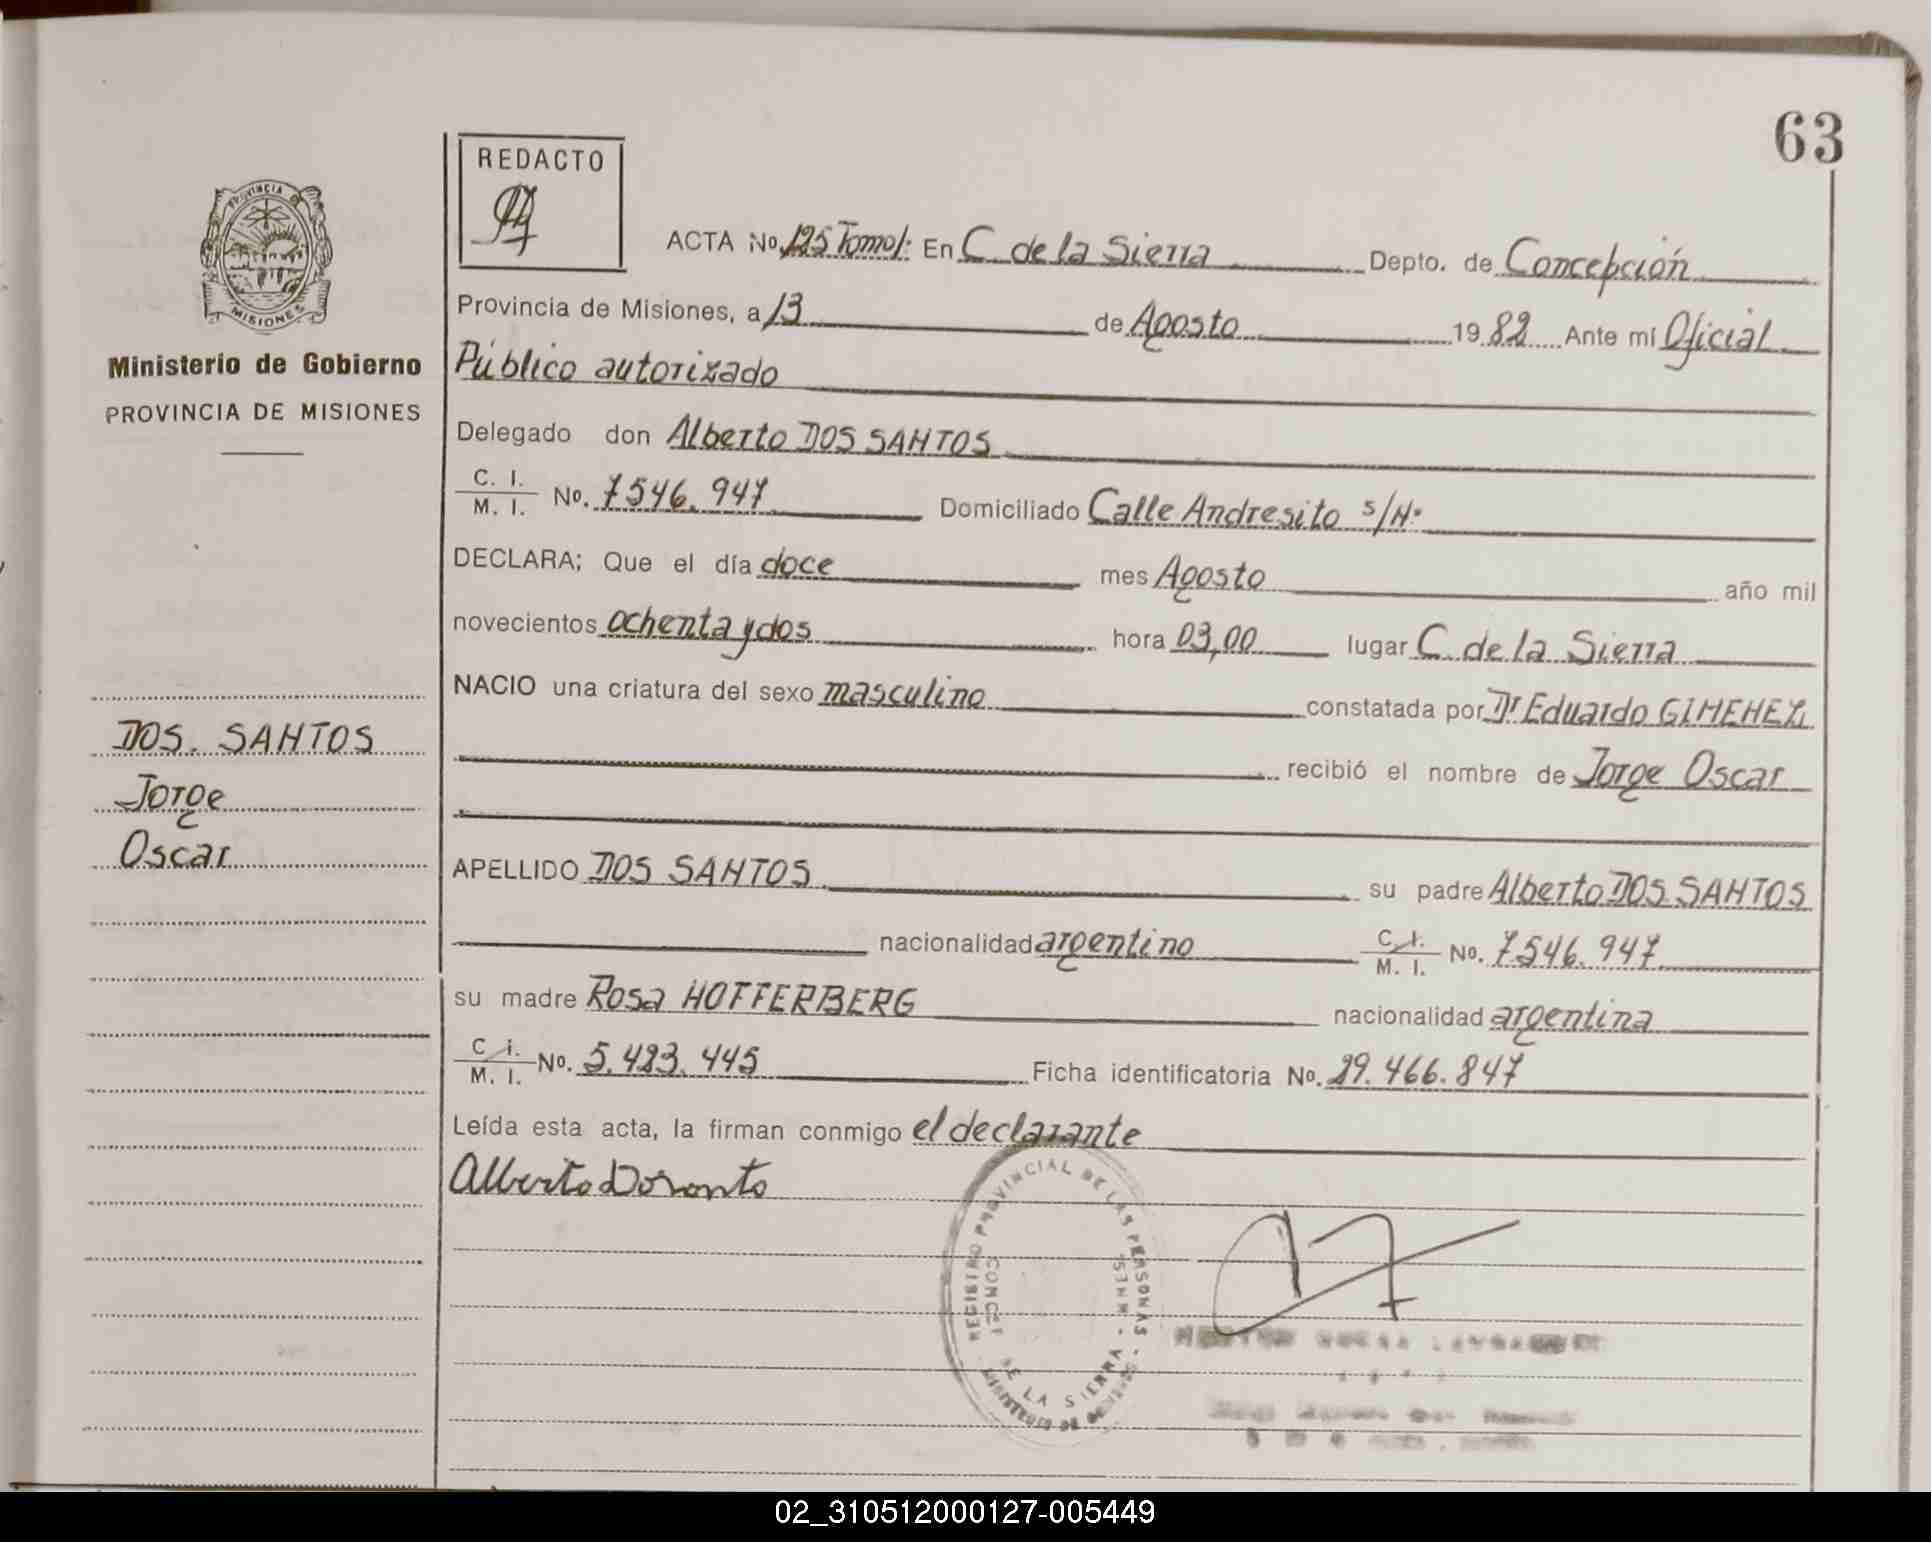 63
PROVINCIA
MISIONES
Ministerio de Gobierno
PROVINCIA DE MISIONES
DOS. SANTOS
Jorge
Oscar
REDACTO
ACTA No. 125 Tomo I: En C. de la Sierra Depto. de Concepción
Provincia de Misiones, a 13 de Agosto 1982 Ante mí Oficial
Público autorizado
Delegado don Alberto DOS SANTOS
C. I. / M. I. No. 7546.947 Domiciliado Calle Andresito s/Nº
DECLARA; Que el día doce mes Agosto año mil
novecientos ochenta y dos hora 03,00 lugar C. de la Sierra
NACIO una criatura del sexo masculino constatada por Dr Eduardo GIMENEZ
recibió el nombre de Jorge Oscar
APELLIDO DOS SANTOS su padre Alberto DOS SANTOS
nacionalidad argentino C. I. / M. I. No. 7546.947
su madre Rosa HOFFERBERG nacionalidad argentina
C. i. / M. I. No. 5.423.445 Ficha identificatoria No. 29.466.847
Leída esta acta, la firman conmigo el declarante
Alberto Dosanto
REGISTRO PROVINCIAL DE LAS PERSONAS
DE LA SIERRA
02_310512000127-005449